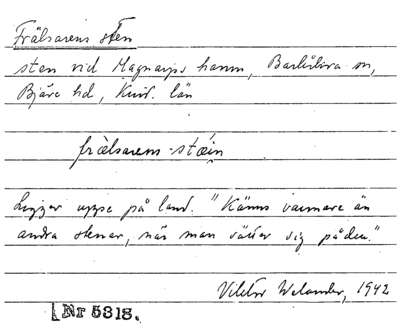 Frälsarens sten
sten vid Magnarps hamn, Barkåkra sn,
Bjäre hd, Krist. län
frälsarens-stæin
Ligger uppe på land. "Känns varmare än
andra stenar, när man sätter sig på den."
Viktor Welander, 1942
Nr 5318.